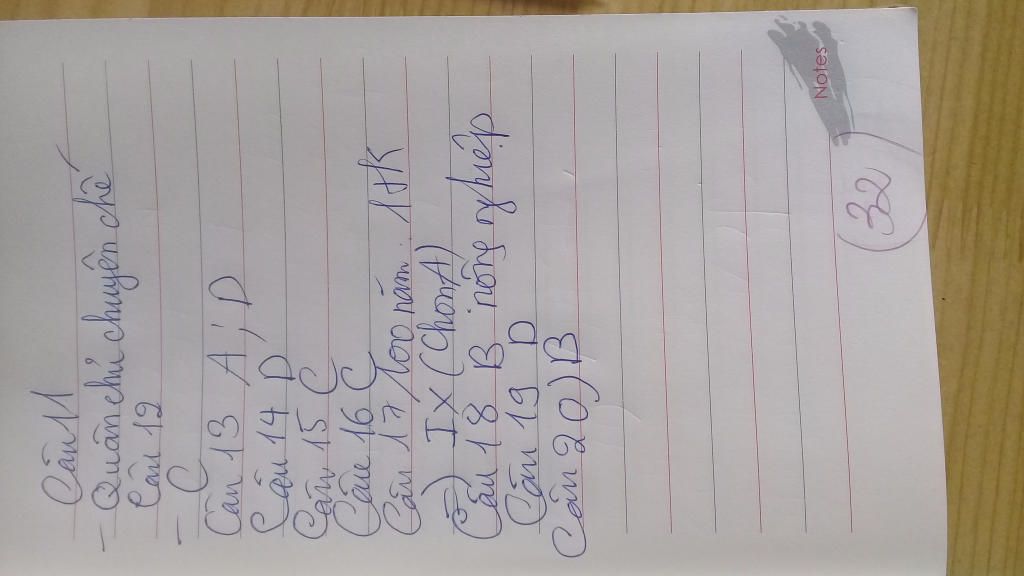 Câu 11
- Quân chủ chuyên chế
Câu 12
- C
Câu 13 A; D
Câu 14 D
Câu 15 C
Câu 16 C
Câu 17 1000 năm.. 1tk
IX (Chọn A)
Câu 18 B nông nghiệp
Câu 19 D
Câu 20) B
Notes
(32)